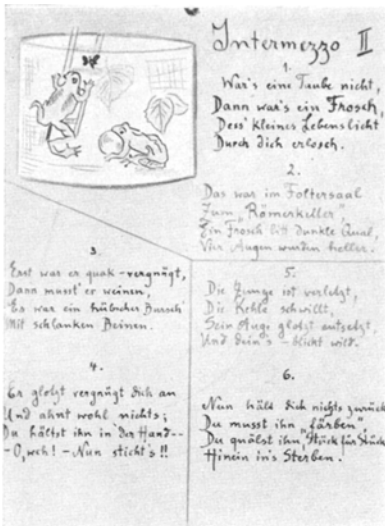 Intermezzo II
1.
War's eine Taube nicht,
Dann war's ein Frosch,
Dess' kleines Lebenslicht
Durch dich erlosch.
2.
Das war im Foltersaal
Zum „Römerkeller",
Ein Frosch litt dunkle Qual,
Vier Augen wurden heller.
3.
Erst war er quak-vergnügt,
Dann musst' er weinen,
Es war ein hübscher Bursch'
Mit schlanken Beinen.
4.
Er glotzt vergnügt dich an
Und ahnt wohl nichts;
Du hältst ihn in der Hand--
- O, weh! - Nun sticht's!!
5.
Die Zunge ist verletzt,
Die Kehle schwillt,
Sein Auge glotzt entsetzt,
Und dein's - blickt wild.
6.
Nun hält dich nichts zurück
Du musst ihn „färben",
Du quälst ihn, Stück für Stück
Hinein in's Sterben.